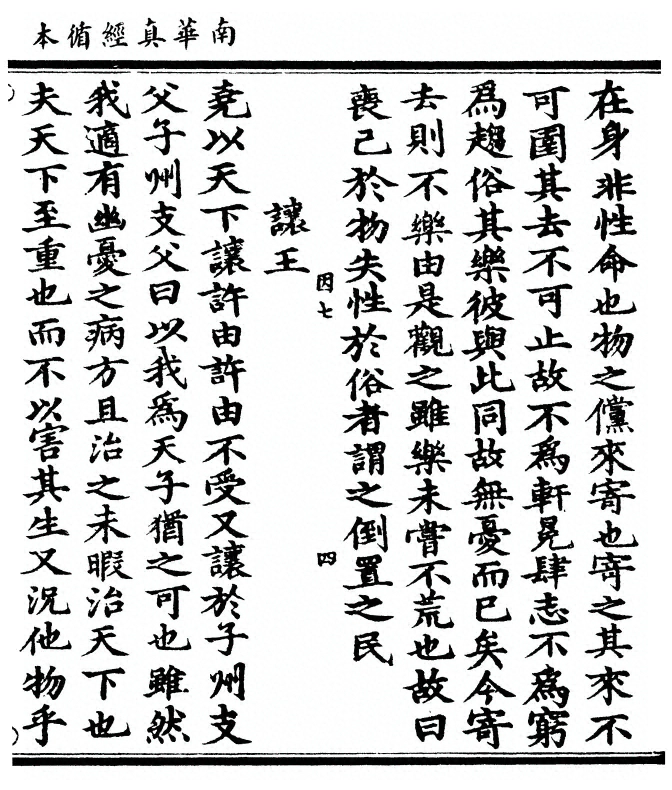 南華真經循本
在身非性命也物之儻來寄也寄之其來不
可圉其去不可止故不為軒冕肆志不為窮
為趨俗其樂彼與此同故無憂而已矣今寄
去則不樂由是觀之雖樂未嘗不荒也故曰
喪己於物失性於俗者謂之倒置之民
因七
四
讓王
堯以天下讓許由許由不受又讓於子州支
父子州支父曰以我為天子猶之可也雖然
我適有幽憂之病方且治之未暇治天下也
夫天下至重也而不以害其生又況他物乎